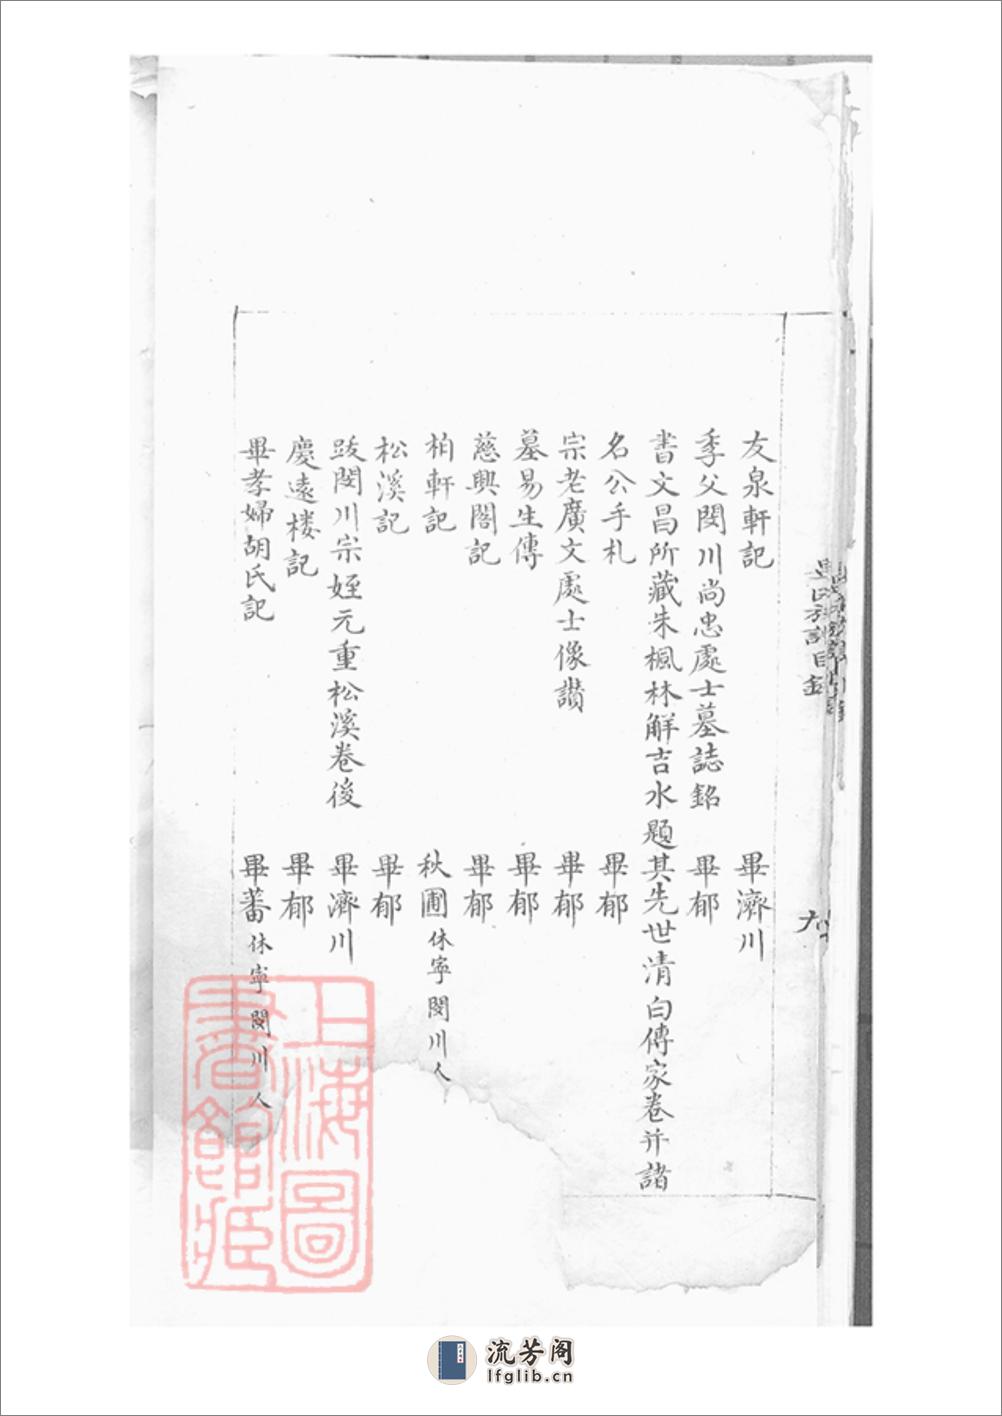 友泉軒記 畢濟川
季父閔川尚忠處士墓誌銘 畢郁
書文昌所藏朱楓林解吉水題其先世清白傳家卷并諸
名公手札 畢郁
宗老廣文處士像讚 畢郁
墓易生傳 畢郁
慈興閣記 畢郁
柏軒記 秋圃休寧閔川人
松溪記 畢郁
跋閔川宗姪元重松溪卷後 畢濟川
慶遠楼記 畢郁
畢孝婦胡氏記 畢蕃休寧閔川人
目錄
上海圖書館藏
流芳阁
lfglib.cn